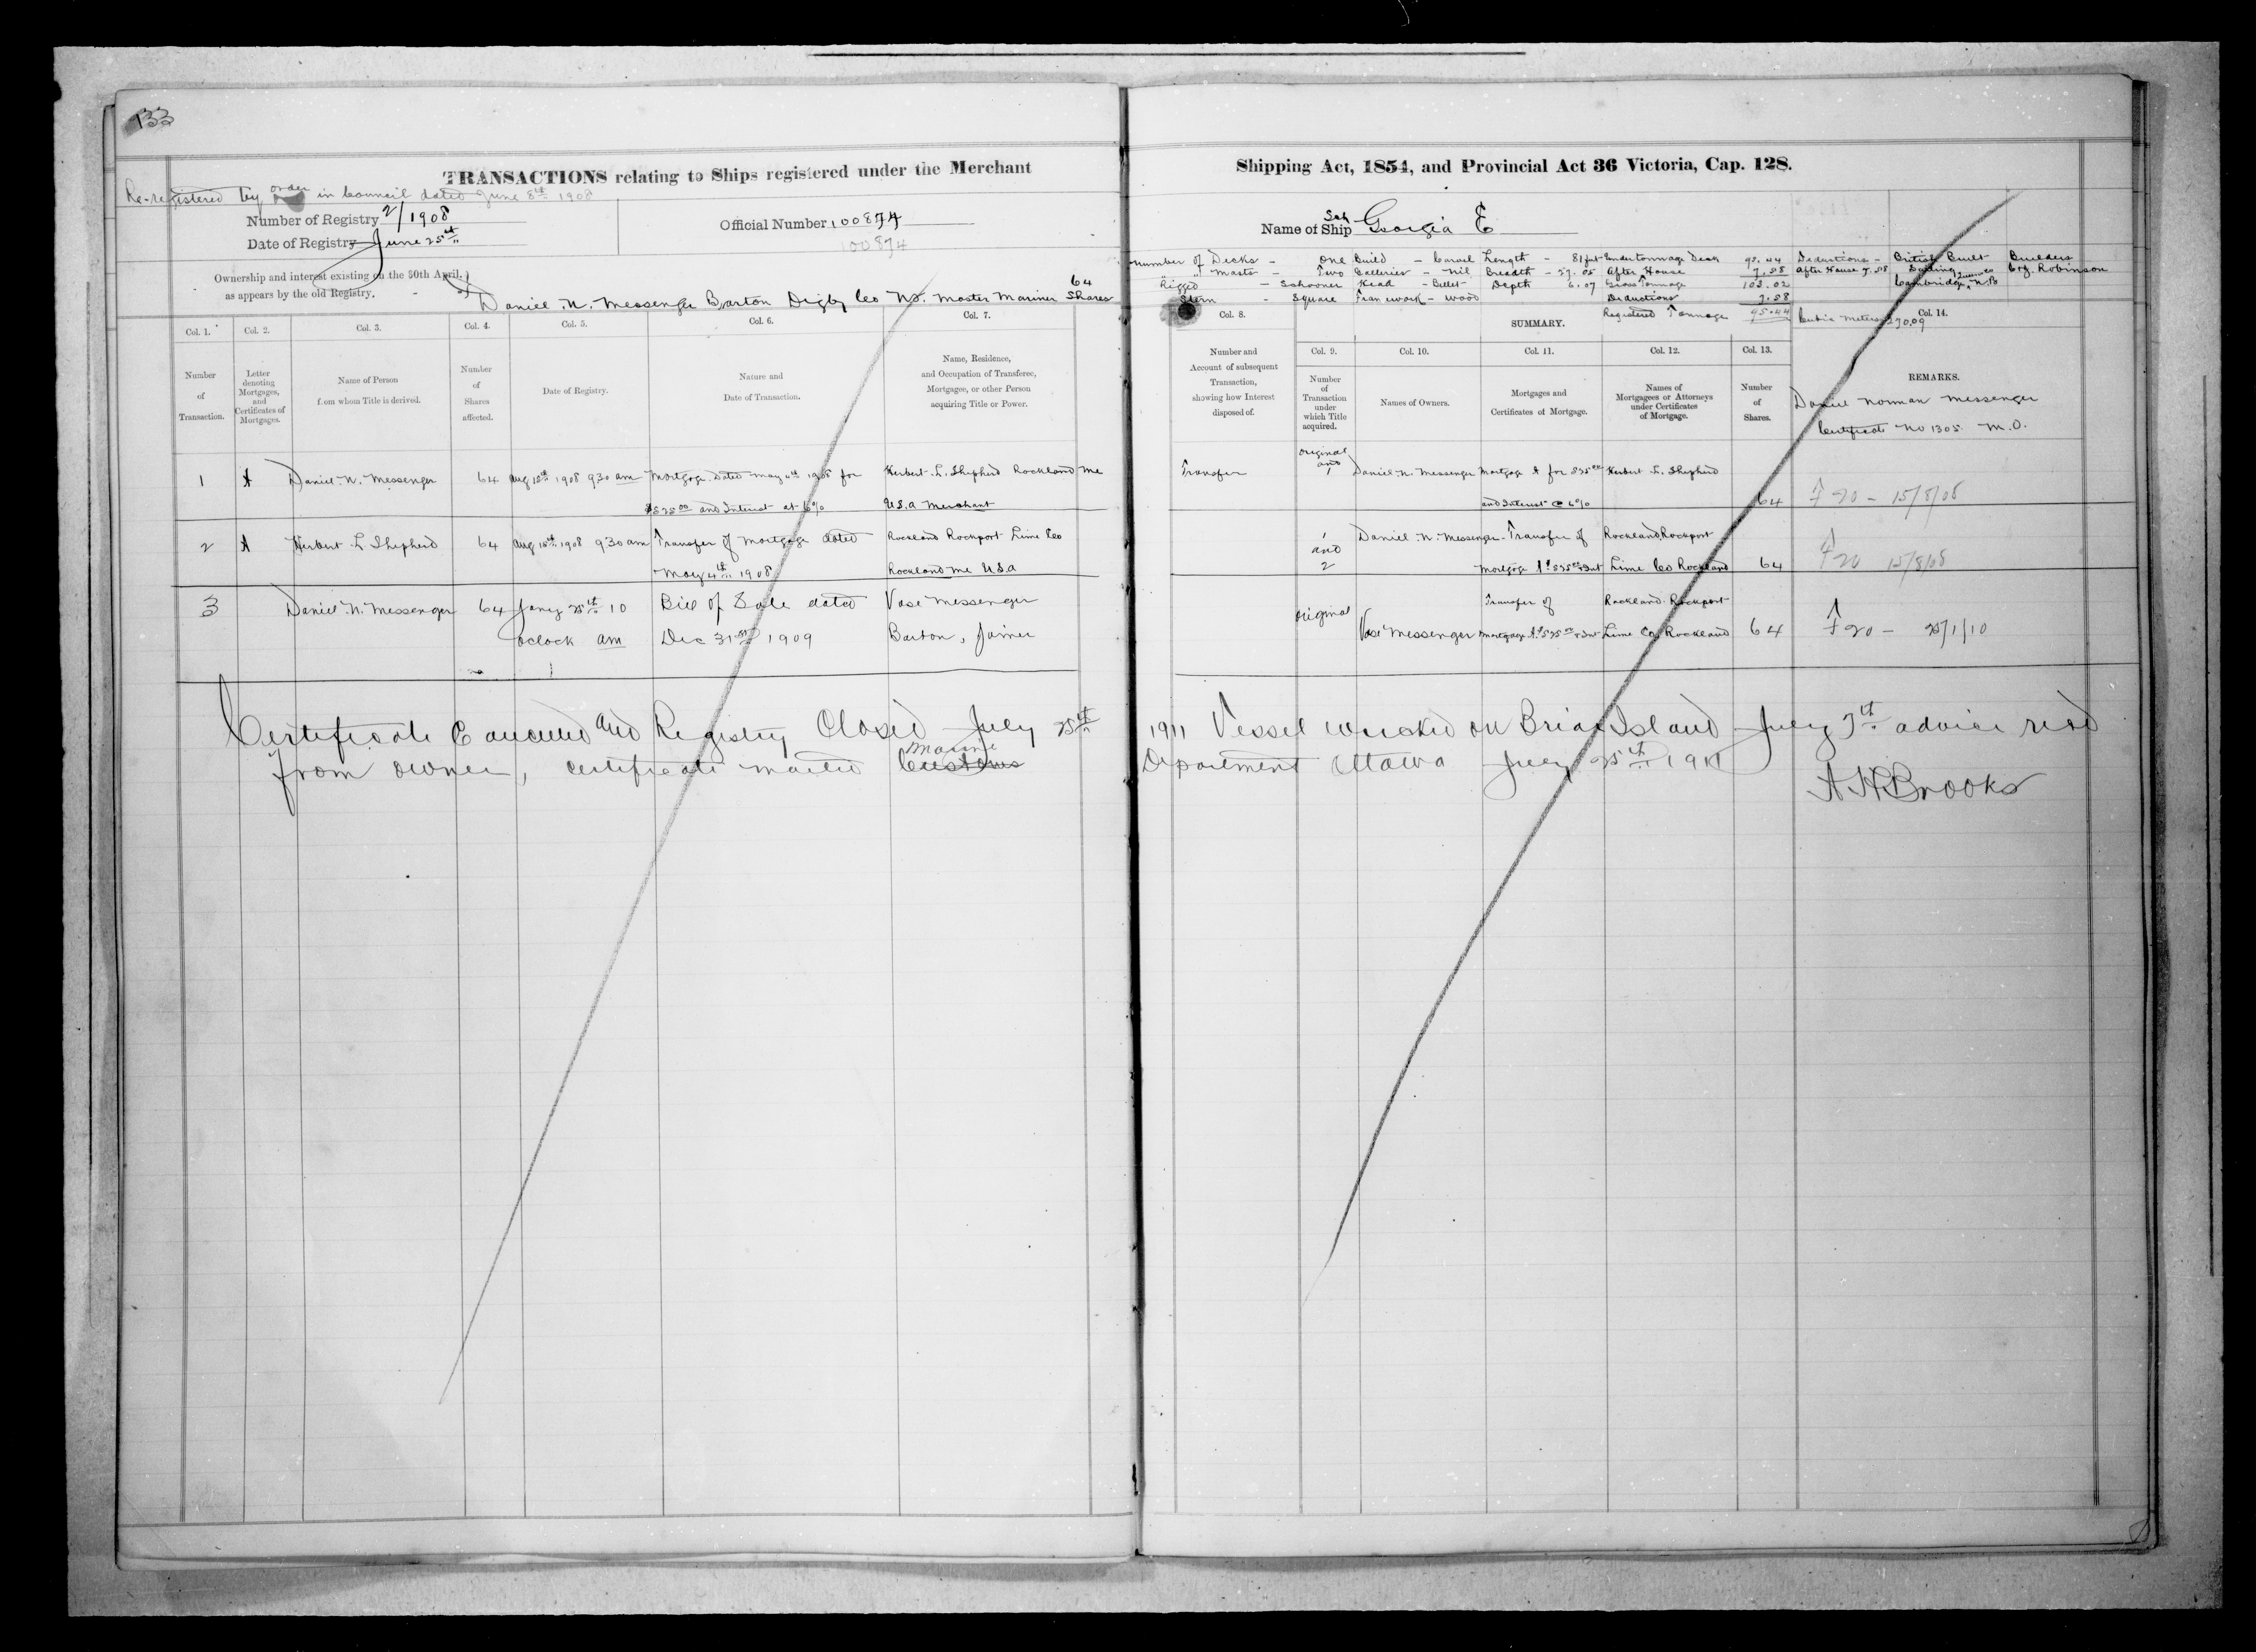 133
TRANSACTIONS relating to Ships registered under the Merchant Shipping Act, 1854, and Provincial Act 36 Victoria, Cap. 128.
Re-registered by order in Council dated June 8th 1908
Number of Registry 2/1908
Date of Registry June 25th
Official Number 100874
100874
Name of Ship Sch Georgia E
Ownership and interest existing on the 30th April,
as appears by the old Registry.
Daniel N. Messenger Barton Digby Co NS. Master Mariner 64 Shares
Number of Decks - One Build - Carvel Length - 81 feet Under tonnage Deck 95.44 Deductions - British Built Builders
" Masts - Two Galleries - Nil Breadth - 27.05 After House 7.58 After House 7.58
Rigged - Schooner Head - Billet Depth 6.07 Gross Tonnage 103.02 Cambridge, N.B
Stern - Square Framework - Wood Deductions 7.58
Registered Tonnage 95.44 Cubic Meters 270.09
Robinson
Col. 1. Col. 2. Col. 3. Col. 4. Col. 5. Col. 6. Col. 7.
Number of Transaction.
Letter denoting Mortgages, and Certificates of Mortgages.
Name of Person from whom Title is derived.
Number of Shares affected.
Date of Registry.
Nature and Date of Transaction.
Name, Residence, and Occupation of Transferee, Mortgagee, or other Person acquiring Title or Power.
Col. 8. SUMMARY. Col. 14.
Col. 9. Col. 10. Col. 11. Col. 12. Col. 13.
Number and Account of subsequent Transaction, showing how Interest disposed of.
Number of Transaction under which Title acquired.
Names of Owners.
Mortgages and Certificates of Mortgage.
Names of Mortgagees or Attorneys under Certificates of Mortgage.
Number of Shares.
REMARKS.
Daniel Norman Messenger
Certificate No 1305 M.O.
1 A Daniel N. Messenger 64 Aug 15th 1908 930 am Mortgage Dated May 4th 1908 for Herbert L. Shepherd Rockland Me
$525.00 and Interest at 6% U.S.A Merchant
Transfer original and 1 Daniel N. Messenger Mortgage A for $525.00 Herbert L. Shepherd
and Interest @ 6% 64 F 20 - 15/8/08
2 A Herbert L Shepherd 64 Aug 15th 1908 930 am Transfer of Mortgage dated Rockland Rockport Lime Co
May 4th 1908 Rockland Me U.S.A
1 and 2 Daniel N. Messenger Transfer of Rockland, Rockport
Mortgage A $525.00 + Int Lime Co Rockland 64 F 20 15/8/08
3 Daniel N. Messenger 64 Jany 25th 10 Bill of Sale dated Vase Messenger
oclock am Dec 31st 1909 Barton, Joiner
original Transfer of Rockland Rockport
Vase Messenger Mortgage A $525.00 + Int Lime Co, Rockland 64 F 20 - 25/1/10
Certificate Cancelled and Registry Closed July 25th 1911 Vessel wrecked on Briar Island July 7th advice recd
from owner, certificate mailed Customs Marine Department Ottawa July 25th 1911
A H Brooks